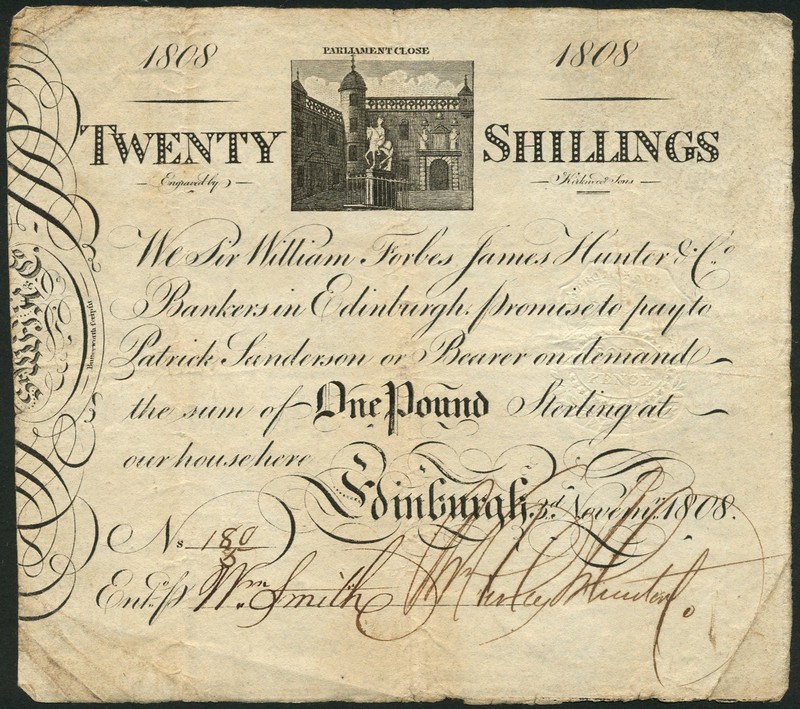 1808 PARLIAMENT CLOSE 1808
TWENTY SHILLINGS
Engraved by Kirkwood & Sons
We Sir William Forbes James Hunter & Co
Bankers in Edinburgh, promise to pay to
Patrick Sanderson or Bearer on demand
the sum of One Pound Sterling at
our house here
Edinburgh, 3d. Novemr. 1808.
No 180/3
Entd. p Wm Smith
Butterworth sculpsit